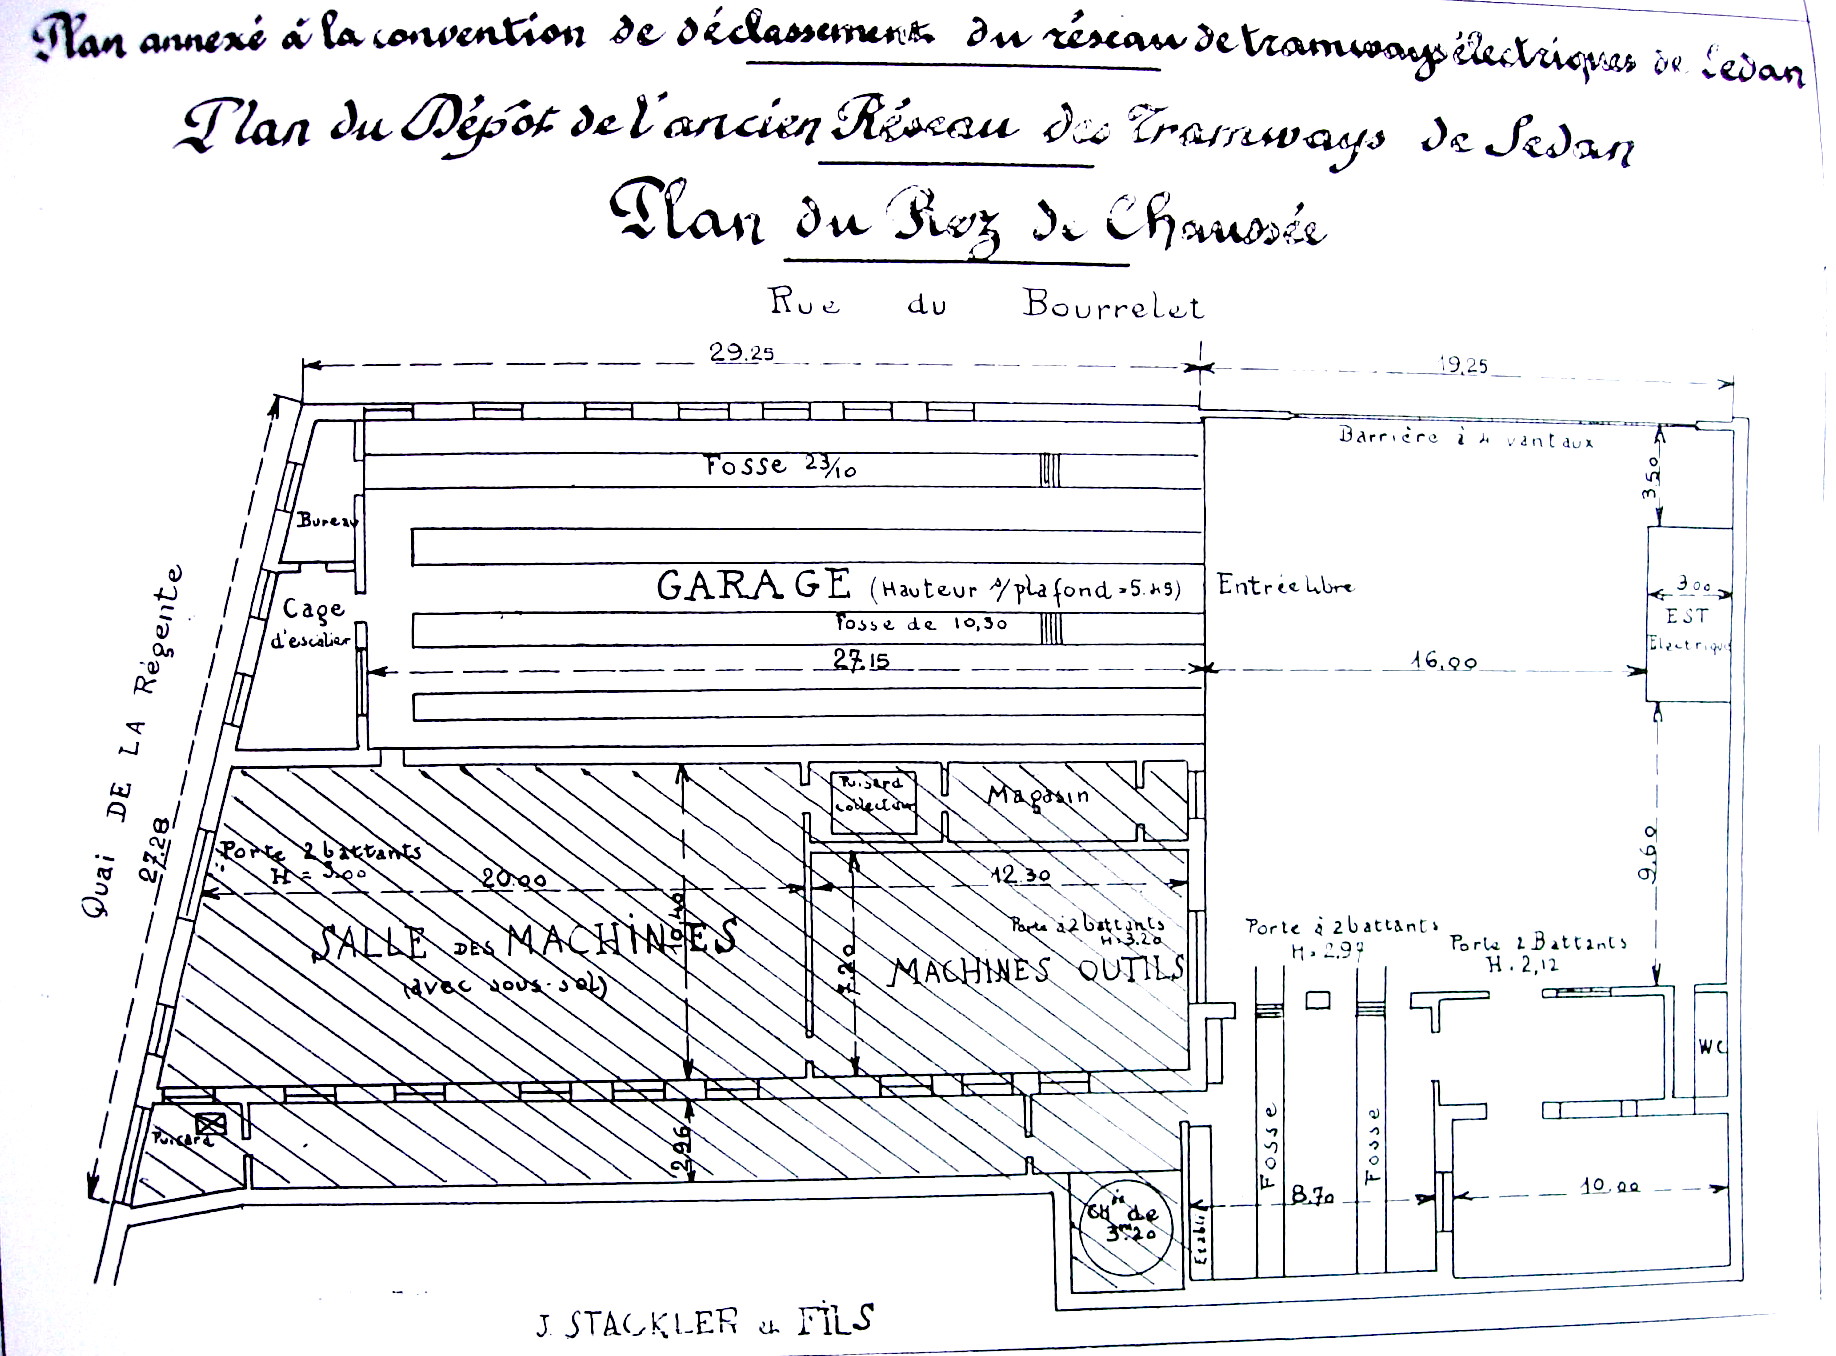 Plan annexé à la convention de déclassement du réseau de tramways électriques de Sedan
Plan du Dépôt de l'ancien Réseau des Tramways de Sedan
Plan du Rez de Chaussée
Rue du Bourrelet
29.25
19,25
Barrière à 4 vantaux
3.50
Fosse 23/10
Bureau
GARAGE (Hauteur s/ plafond = 5.45)
Entrée libre
3.00
EST
Electrique
Cage
d'escalier
Fosse de 10,30
27.15
16,00
Quai DE LA Régente
27.28
Puisard
collecteur
Magasin
Porte 2 battants
H = 3.00
20.00
12.30
9.60
10.40
7.20
SALLE DES MACHINES
(avec sous-sol)
Porte à 2 battants
H = 3.20
MACHINES OUTILS
Porte à 2 battants
H = 2.97
Porte 2 Battants
H. 2,12
WC
Puisard
2.96
Fosse
Fosse
CHée de
3m.20
Etabli
8.70
10.00
J. STACKLER & FILS